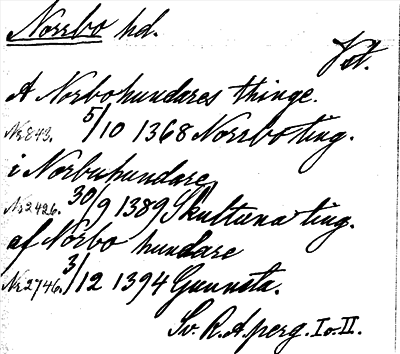 Norrbo hd.
Vst.
A Norbohundares thinge.
Nr. 843. 5/10 1368 Norrbo ting.
i Norbuhundare
Nr 2426. 30/9 1389 Skultuna ting.
af Norbo hundare
Nr 2746. 3/12 1394 Gunnsta.
Sv. R.A. perg. I o. II.